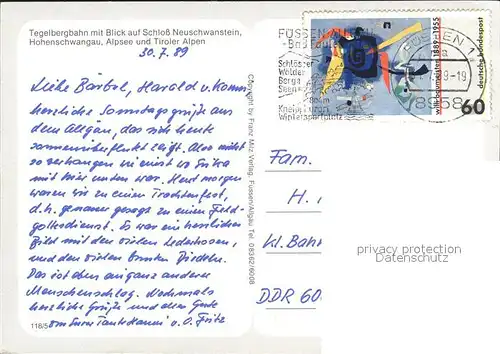 Tegelbergbahn mit Blick auf Schloß Neuschwanstein,
Hohenschwangau, Alpsee und Tiroler Alpen
30.7.89
Liebe Bärbel, Harald u.
herzliche Sonntagsgrüße aus
dem Allgäu, das sich heute
sonnenüberflutet zeigt. Also nicht
so verhangen wie einst wo Erika
mit hier unten war. Heut morgen
waren wir zu einem Trachtenfest,
d.h. genauer gesagt zu einem Feld-
gottesdienst. Es war ein herrliches
Bild mit den vielen Lederhosen,
und den vielen bunten Dirndeln.
Das ist eben ein ganz anderer
Menschenschlag. Nochmals
herzliche Grüße und alles Gute
von Eurer Tante Hanni u. O. Fritz
118/5
Copyright by Franz Milz Verlag, Füssen/Allgäu Tel. 08362/6008
FÜSSEN
Schlösser
Wälder
Berge
Seen
Kneippkurort
Wintersportplatz
FÜSSEN 1
89-19
8958
willi baumeister 1889-1955
deutsche bundespost
60
Fam.
H.
Kl. Bahn
DDR 60
privacy protection
Datenschutz